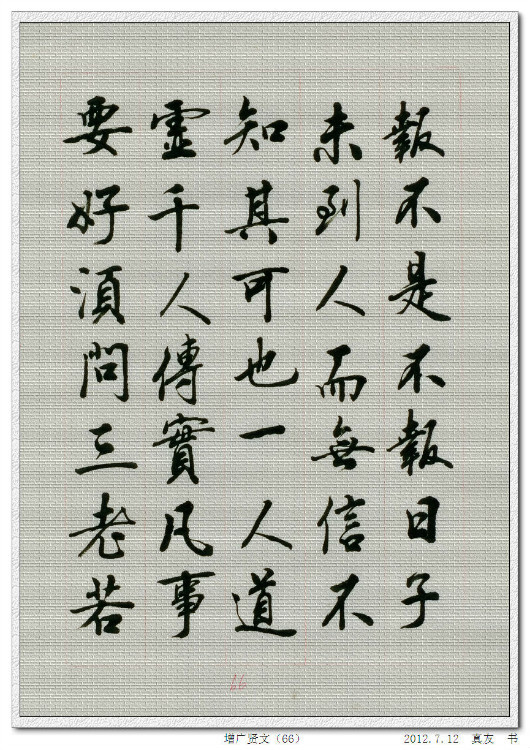 報不是不報日子
未到人而無信不
知其可也一人道
霊千人傳實凡事
要好湏問三老若
66
增广贤文（66） 2012.7.12 真友 书